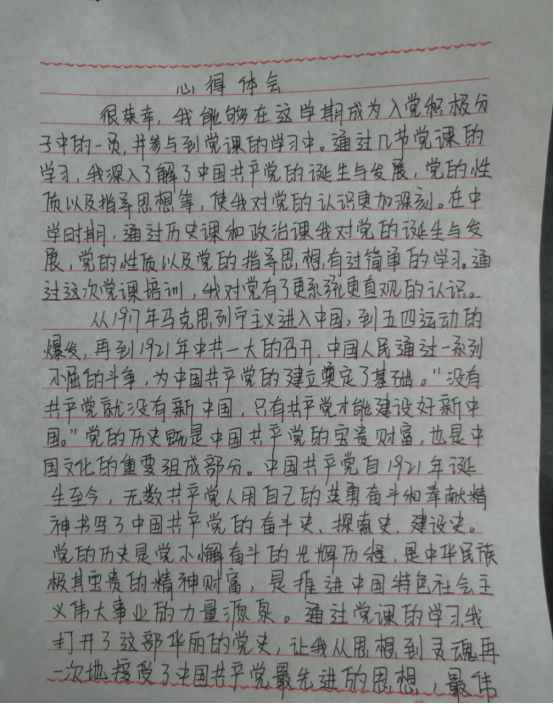 心得体会
很荣幸，我能够在这学期成为入党积极分
子中的一员，并参与到党课的学习中。通过几节党课的
学习，我深入了解了中国共产党的诞生与发展，党的性
质以及指导思想等，使我对党的认识更加深刻。在中
学时期，通过历史课和政治课我对党的诞生与发
展，党的性质以及党的指导思想，有过简单的学习。通
过这次党课培训，我对党有了更系统更直观的认识。
从1917年马克思列宁主义进入中国，到五四运动的
爆发，再到1921年中共一大的召开，中国人民通过一系列
不屈的斗争，为中国共产党的建立奠定了基础。“没有
共产党就没有新中国，只有共产党才能建设好新中
国。”党的历史既是中国共产党的宝贵财富，也是中
国文化的重要组成部分。中国共产党自1921年诞
生至今，无数共产党人用自己的英勇奋斗和奉献精
神书写了中国共产党的奋斗史、探索史、建设史。
党的历史是党不懈奋斗的光辉历程，是中华民族
极其宝贵的精神财富，是推进中国特色社会主
义伟大事业的力量源泉。通过党课的学习我
打开了这部华丽的党史，让我从思想到灵魂再
一次地接受了中国共产党最先进的思想，最伟